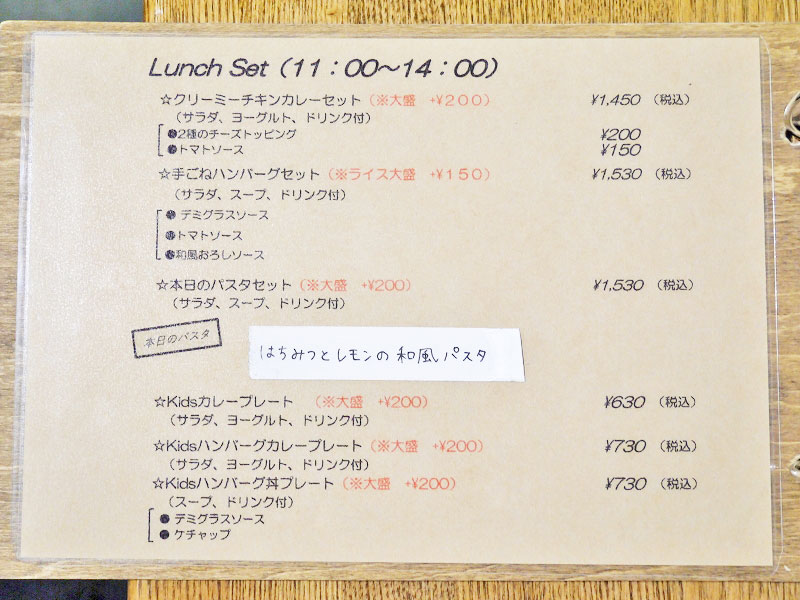 Lunch Set（11：00～14：00）
☆クリーミーチキンカレーセット（※大盛　+¥200） ¥1,450 （税込）
（サラダ、ヨーグルト、ドリンク付）
●2種のチーズトッピング ¥200
●トマトソース ¥150
☆手ごねハンバーグセット（※ライス大盛　+¥150） ¥1,530 （税込）
（サラダ、スープ、ドリンク付）
● デミグラスソース
●トマトソース
●和風おろしソース
☆本日のパスタセット（※大盛　+¥200） ¥1,530 （税込）
（サラダ、スープ、ドリンク付）
本日のパスタ
はちみつとレモンの和風パスタ
☆Kidsカレープレート　（※大盛　+¥200） ¥630 （税込）
（サラダ、ヨーグルト、ドリンク付）
☆Kidsハンバーグカレープレート（※大盛　+¥200） ¥730 （税込）
（サラダ、ヨーグルト、ドリンク付）
☆Kidsハンバーグ丼プレート（※大盛　+¥200） ¥730 （税込）
（スープ、ドリンク付）
● デミグラスソース
● ケチャップ